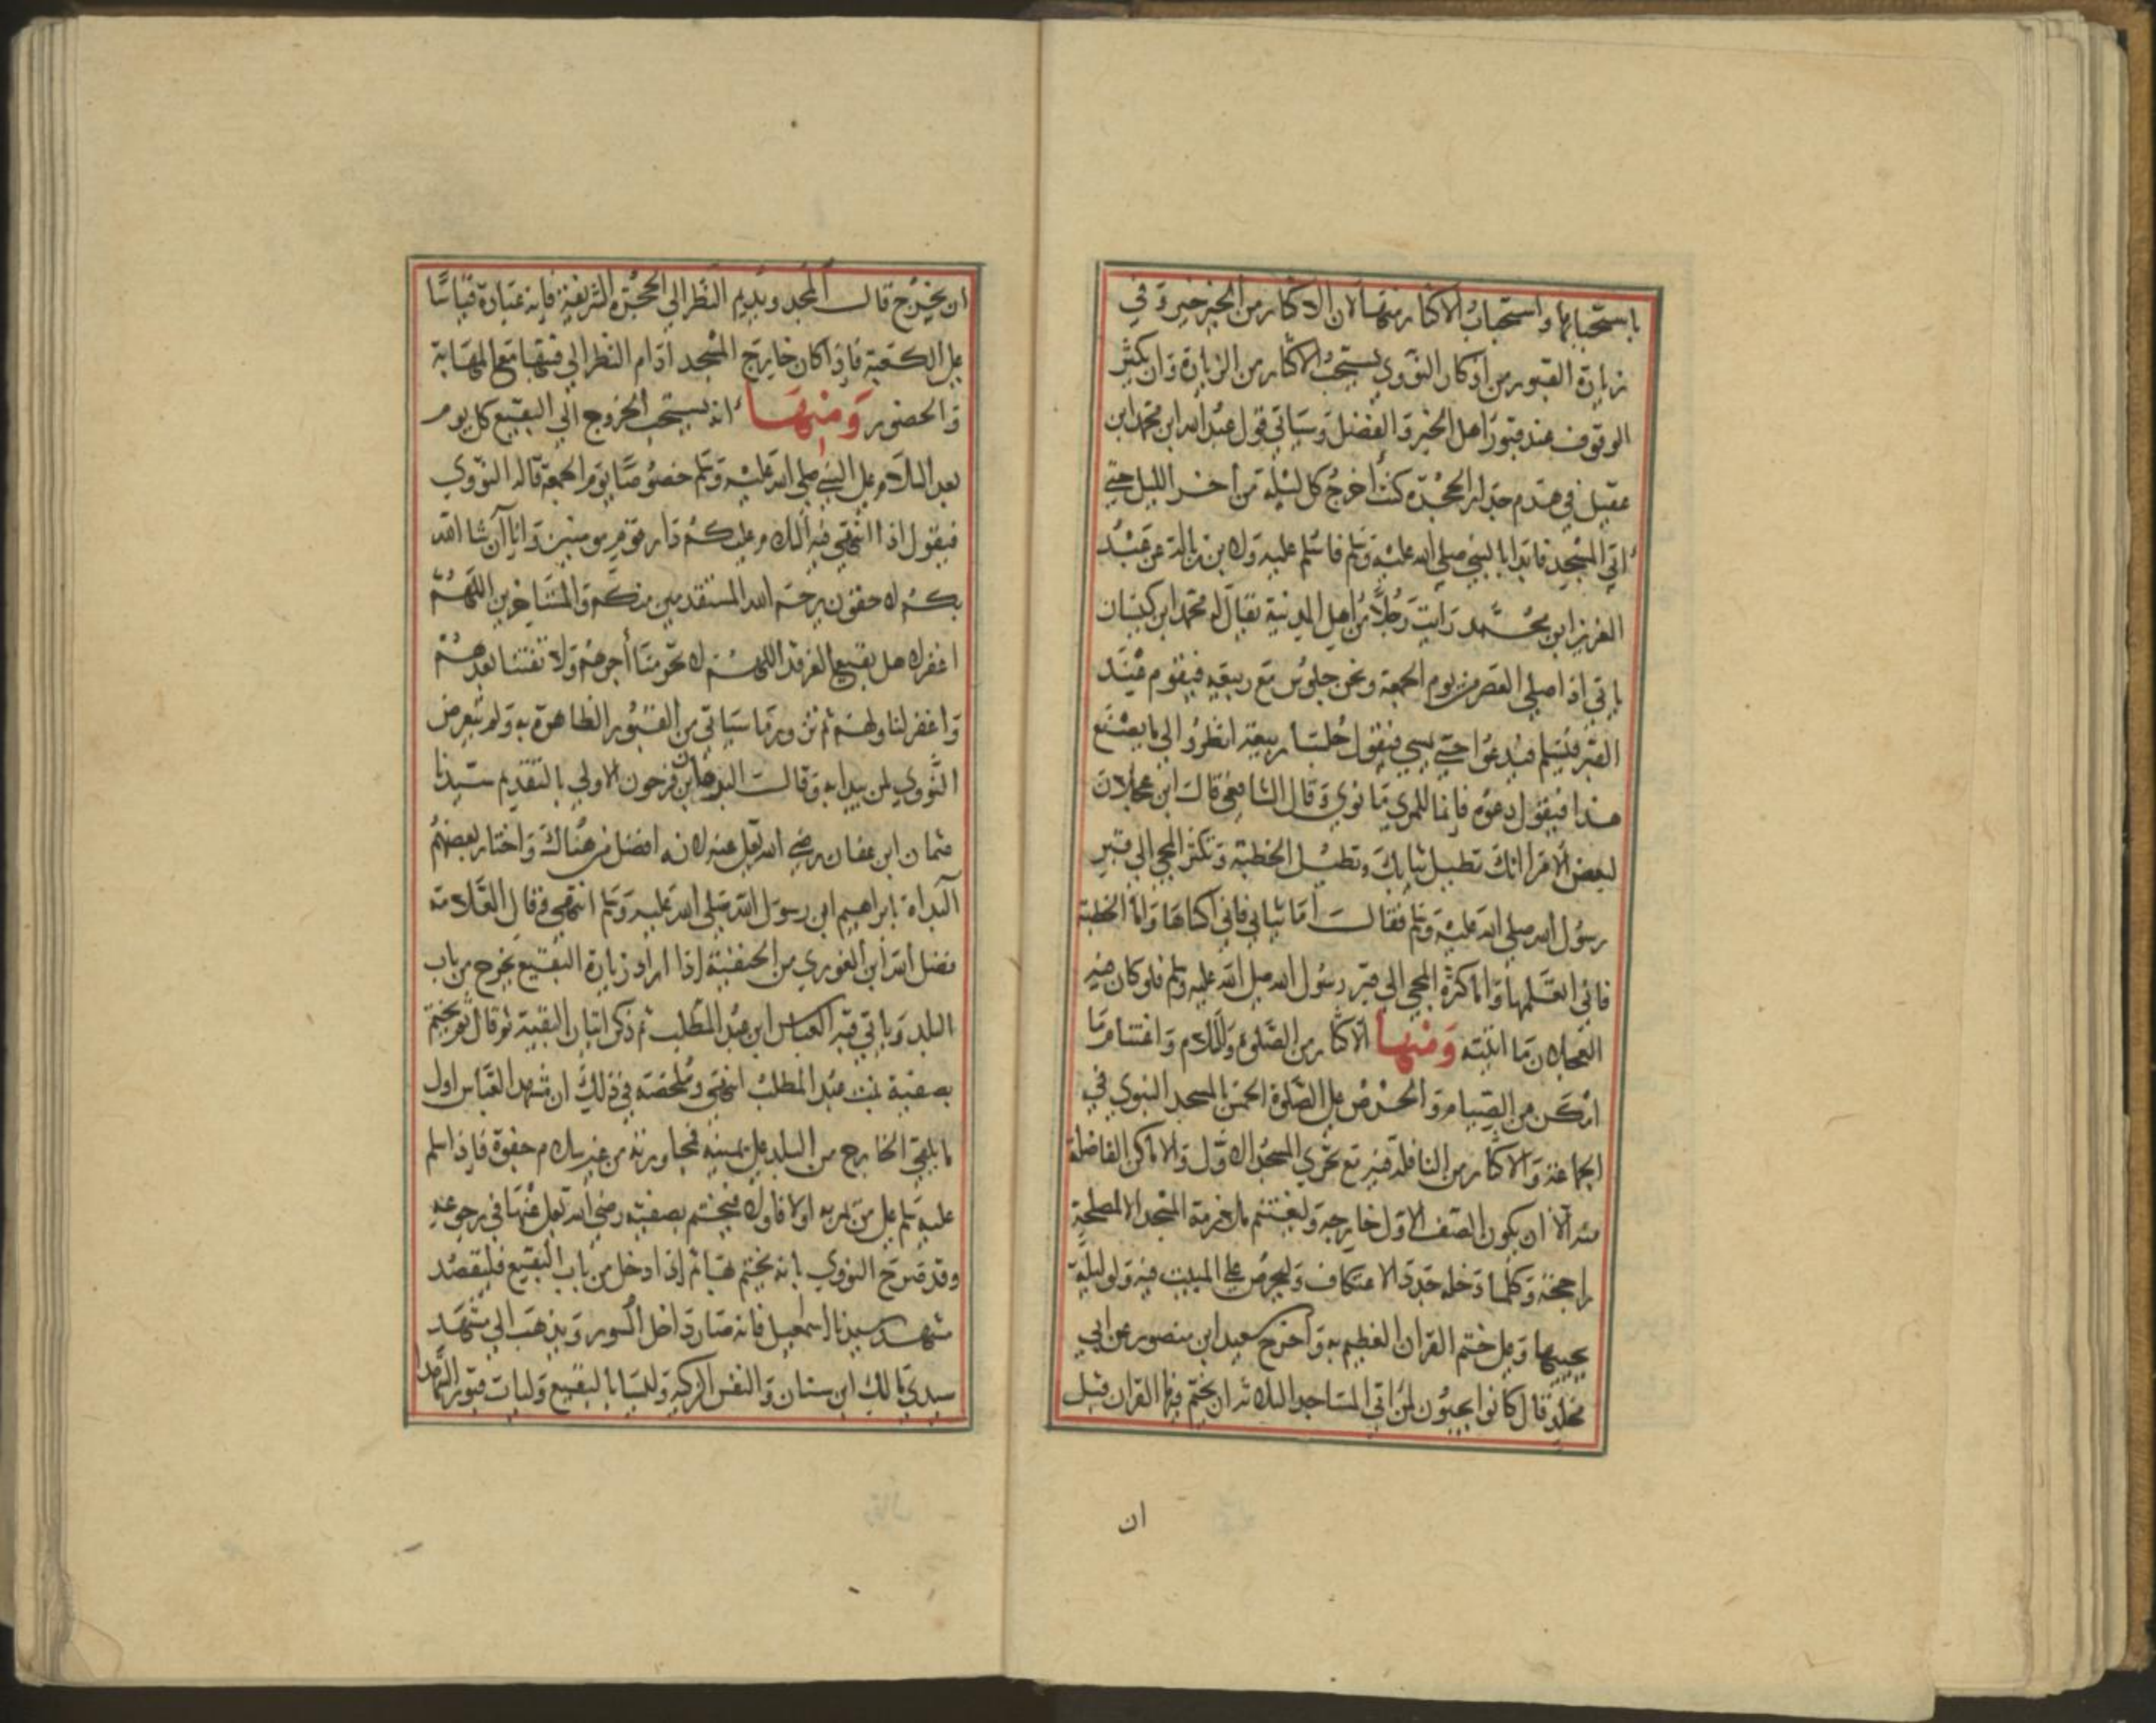 باستحبابها واستحباب الاكثار منها لان الاكثار من الخير خير وفي
زيارة القبور من اذكار النووي يستحب الاكثار من الزيارة وان يكثر
الوقوف عند قبور اهل الخير والفضل وسياتي قول عبد الله ابن محمد ابن
عقيل في هدم جدار الحجرة كنت أخرج كل ليلة من أخر الليل حتى
أتي المسجد فابدا بالنبي صلي الله عليه وسلم فاسلم عليه ولابن زبالة عن عبد
العزيز ابن محمد رايت رجلا من اهل المدينة يقال له محمد ابن كيسان
ياتي اذا صلي العصر من يوم الجمعة ونحن جلوس مع ربيعه فيقوم عند
القبر فيسلم فيدعوا حتى يمسي فيقول جلسا ربيعة انظروا الي ما يصنع
هذا فيقول دعوه فإنما للمري ما نوي وقال الشافعي قال ابن عجلان
لبعض الامرا انك تطيل ثيابك وتطيل الخطبة وتكثر المجي الي قبر
رسول الله صلي الله عليه وسلم فقال اما ثيابي فاني اكساها واما الخطبة
فاني اتعلمها واما كثرة المجي الي قبر رسول الله صلى الله عليه وسلم فلو كان فيه
العجلان ما اتيته ومنها الاكثار من الصلوة والسلام واغتنام ما
امكن من الصيام والحرص علي الصلوة الخمس بالمسجد النبوي في
الجماعة والاكثار من النافلة فيه مع تحري المسجد الاول والاماكن الفاضلة
منه الا ان يكون الصف الاول خارجه وليغتنم ملازمة المسجد الا لمصلحة
راجحة وكلما دخله جدد الاعتكاف وليحرص علي المبيت فيه ولو ليلة
يحييها وعلى ختم القران العظيم به واخرج سعيد ابن منصور عن ابي
مخلد قال كانوا يحبون لمن اتي المساجد الثلاثه ان يختم فيها القران قبل
ان
ان يخرج قال المجد ويديم النظر الي الحجرة الشريفة فإنه عبادة قياسا
على الكعبة فاذا كان خارج المسجد ادام النظر الي قبتها مع المهابة
والحضور ومنها انه يستحب الخروج الي البقيع كل يوم
بعد السلام على النبي صلي الله عليه وسلم خصوصا يوم الجمعة قاله النووي
فيقول اذا انتهي فيه السلام عليكم دار قوم مومنين وانا ان شا الله
بكم لاحقون يرحم الله المستقدمين منكم والمستاخرين اللهم
اغفر لاهل بقيع الغرقد اللهم لا تحرمنا أجرهم ولا تفتنا بعدهم
واغفر لنا ولهم ثم تزور ما سياتي من القبور الظاهرة به ولم يتعرض
النووي لمن يبدا به وقال البرهان ابن فرحون الاولي بالتقديم سيدنا
عثمان ابن عفان رضي الله تعلى عنه لانه افضل من هناك واختار بعضهم
البداة بابراهيم ابن رسول الله صلي الله عليه وسلم انتهي وقال العلامة
فضل الله ابن الغوري من الحنفية إذا اراد زيارة البقيع يخرج من باب
البلد وياتي قبة العباس ابن عبد المطلب ثم ذكر اتيان البقية ثم قال ثم يختم
بصفية بنت عبد المطلب انتهي وملخصه في ذلك ان مشهد العباس اول
ما يلقي الخارج من البلد على يمينه فمجاوزته من غير سلام جفوة فاذا سلم
عليه سلم على من يمر به اولا فاولا فيختم بصفيه رضي الله تعلى عنها في رجوعه
وقد صرح النووي بانه يختم بها ثم إذا دخل من باب البقيع فليقصد
مشهد سيدنا اسمعيل فانه صار داخل السور ويذهب الي مشهد
سيدي مالك ابن سنان والنفس الزكيه وليسا بالبقيع وليات قبور الشهدا